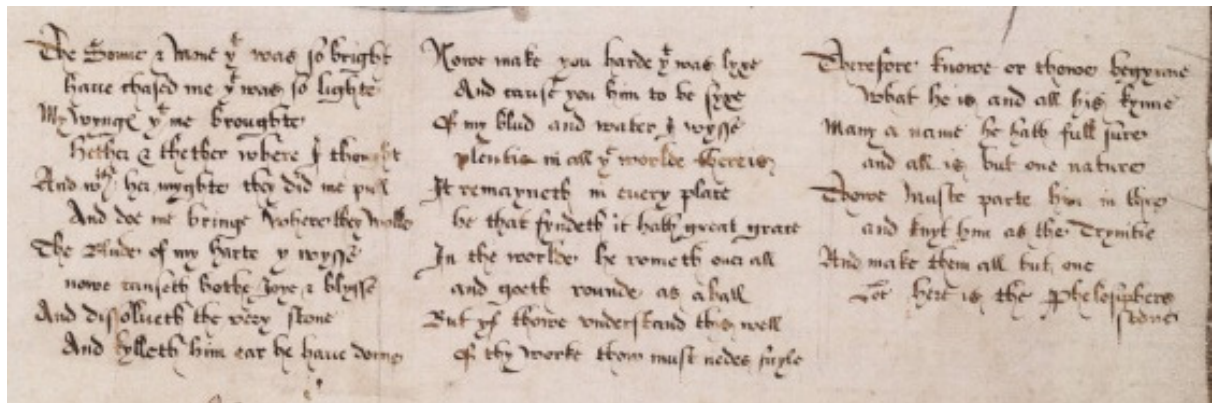 The Sonne & Mone yt was so bright
Haue chased me yt was so lighte
My wynges yt me broughte
Hether & thether where I thought
And wth her myghte they did me pull
And doe me bringe where they wolle
The Blude of my Harte y wysse
nowe causeth bothe Joye & blysse
And dissolueth the very stone
And kylleth him ear he haue done
Nowe make you harde yt was lyxe
And cause you him to be fyxe
Of my blud and water I wysse
plentie in all ye worlde there is
It remayneth in euery place
he that fyndeth it hath great grace
In the worlde he rometh ouer all
and goeth rounde as a ball
But yf thowe understand this well
Of thy worke thow must nedes fayle
Therefore knowe or thowe begynne
What he is and all his kynne
Many a name he hath full sure
and all is but one nature
Thowe Muste parte him in thre
and knyt him as the Trynitie
And make them all but one
Loe here is the Phelosiphers
stone